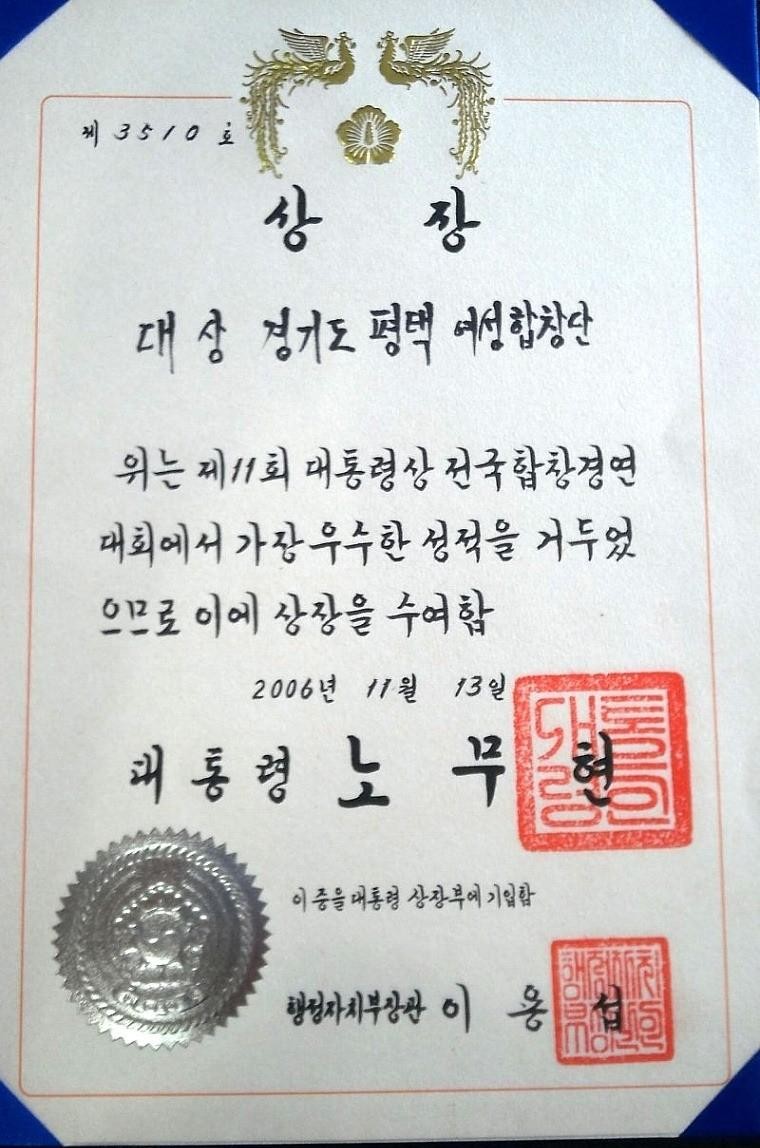 제 3510 호
상 장
대상 경기도 평택 여성합창단
위는 제11회 대통령상 전국합창경연
대회에서 가장 우수한 성적을 거두었
으므로 이에 상장을 수여함
2006년 11월 13일
대통령 노무현
이 증을 대통령 상장부에 기입함
행정자치부장관 이용섭